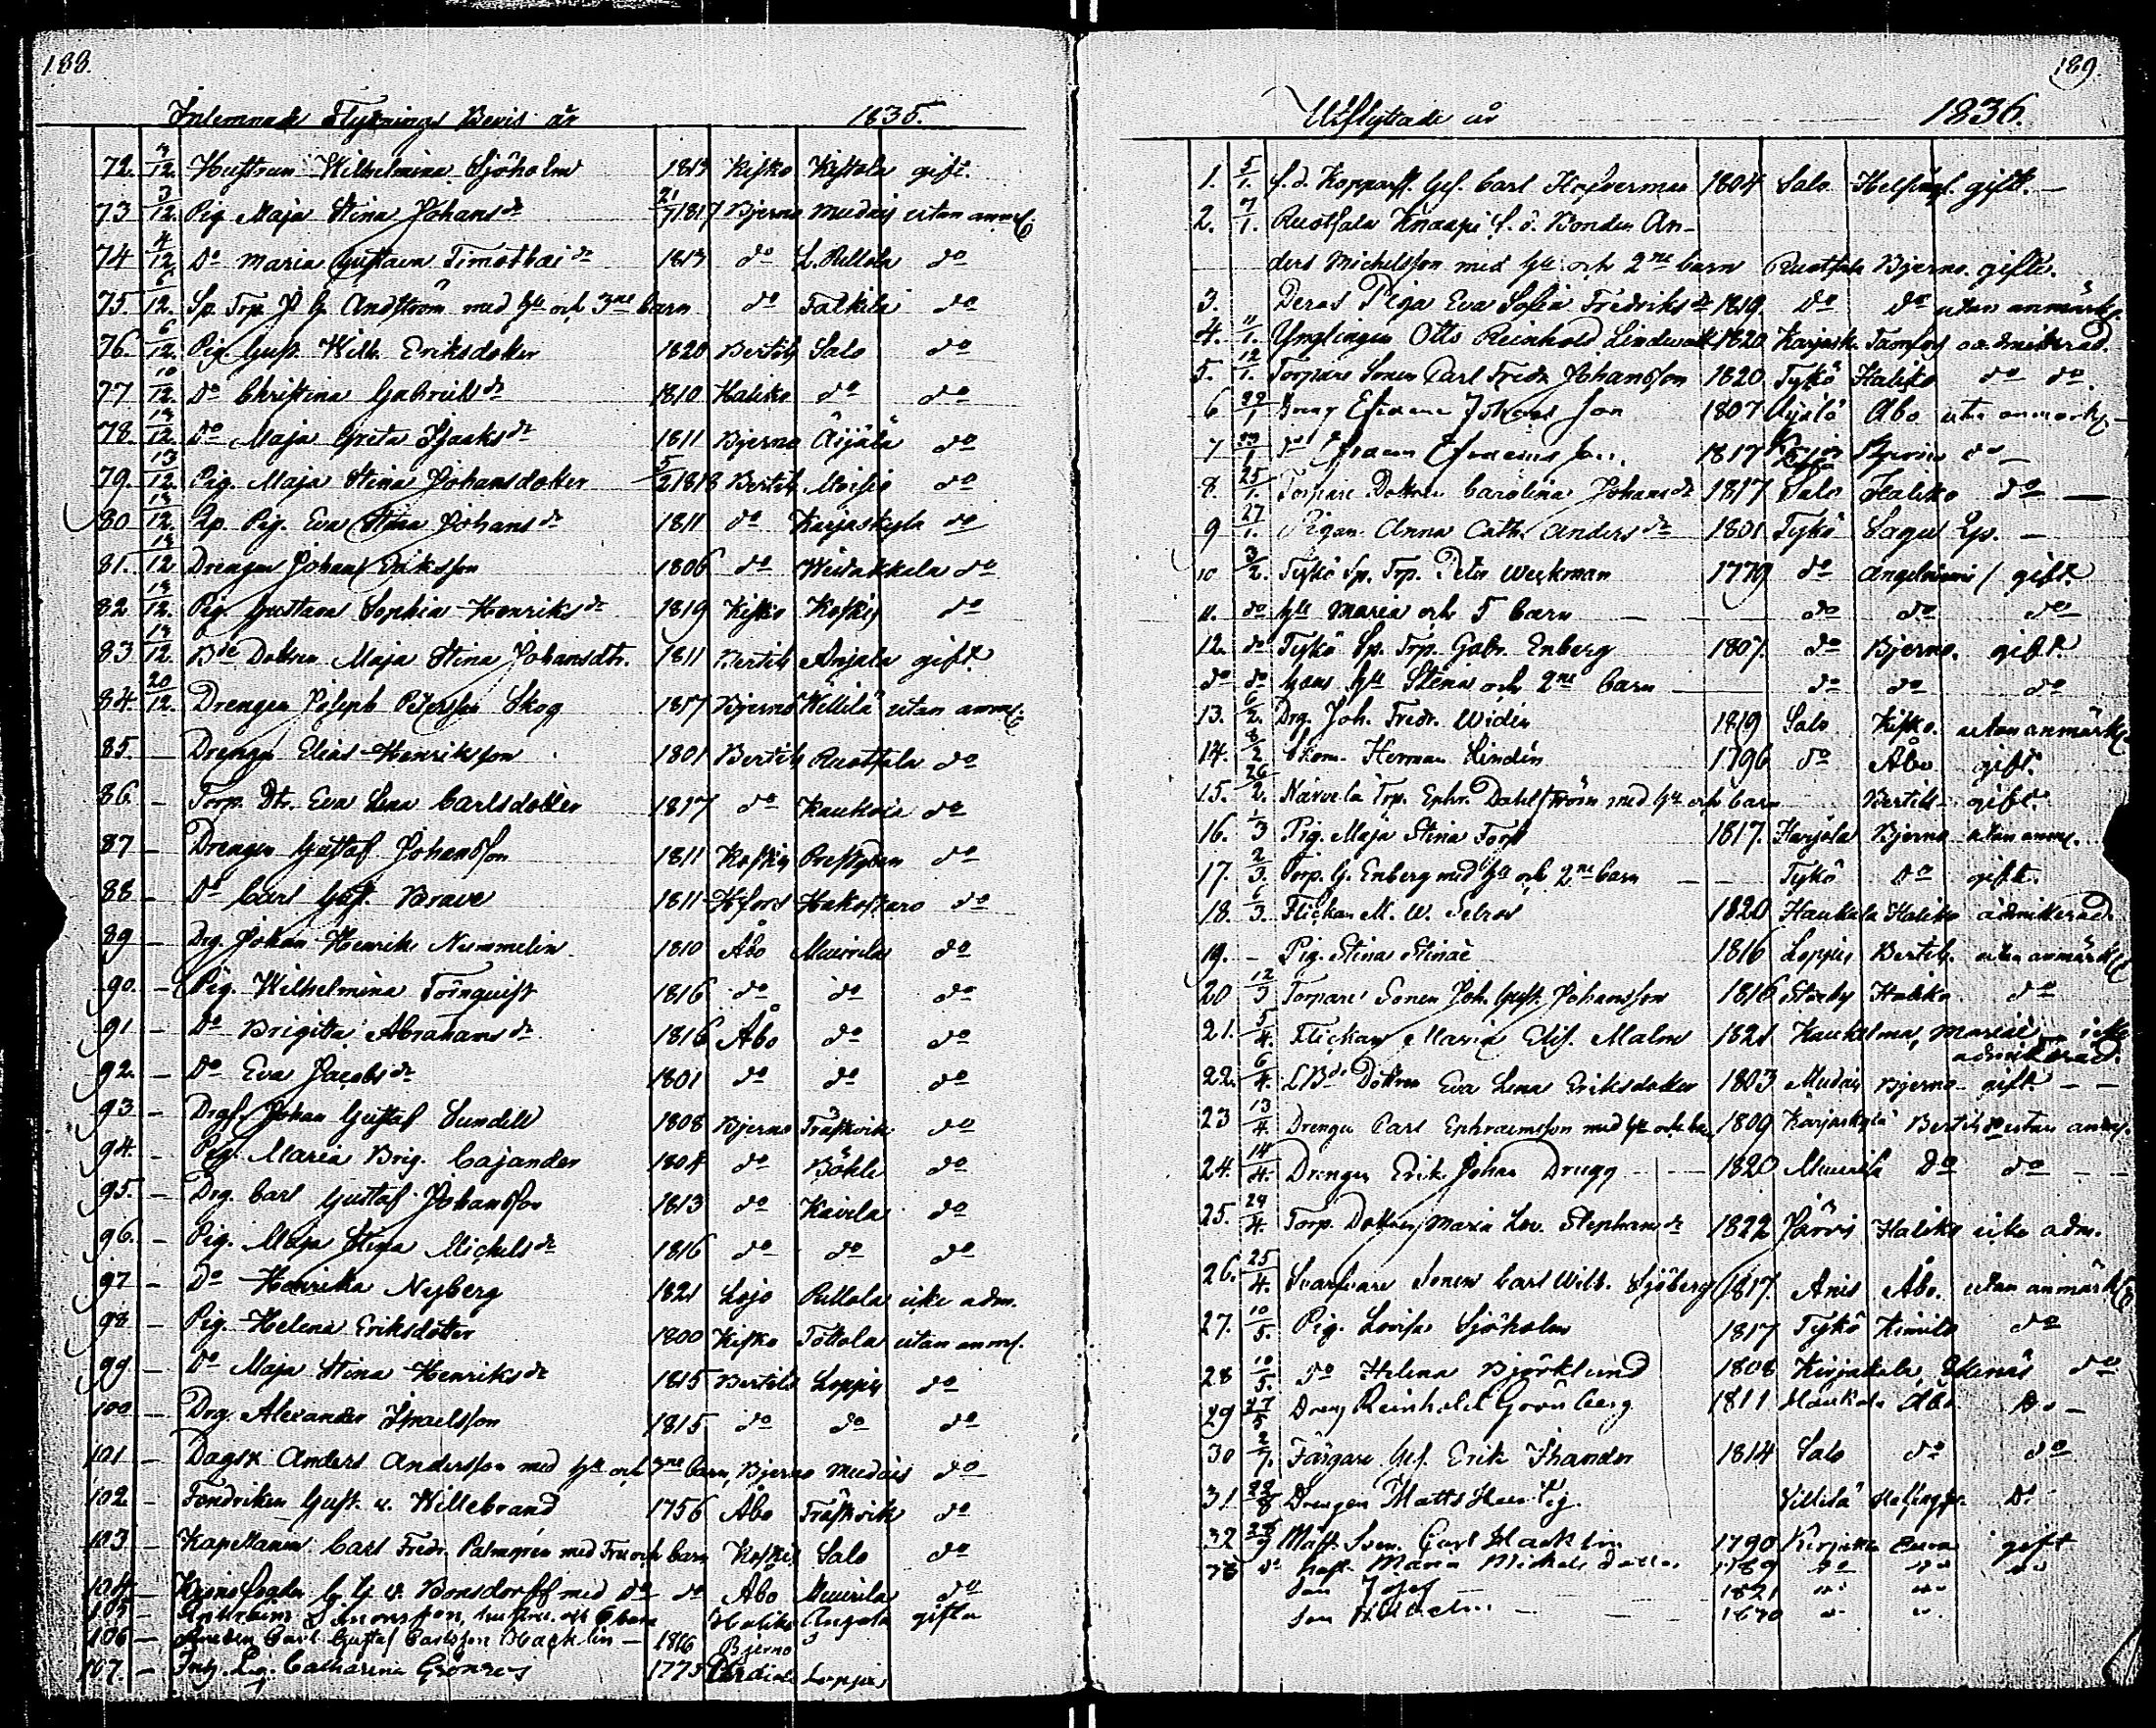 188.
Inlemnade Flytnings Bevis år 1835.
72. 3/12. Hustrun Wilhelmina Sjöholm 1813 Kisko Kistola gift.
73 3/12. Pig Maja Stina Johans dr 21/7 1817 Bjerno Mudais utan anm.
74 4/12 Do Maria Gustava Timothai dr 1813 do L. Pullola do
75. 6/12. Sp. Trp. J G. Andström med hu och 3ne barn do Talkila do
76. 6/12. Pig. Gust. Wilh. Eriksdotter 1820 Bertils Salo do
77 10/12. Do Christina Gabriels dr 1810 Haliko do do
78. 13/12. Do Maja Greta Isacks dr 1811 Bjerno Äijälä do
79. 13/12. Pig. Maja Stina Johansdotter 5/2 1818 Bertils Moisio do
80 13/12. Sp. Pig. Eva Stina Johans dr 1811 do Karjaskyla do
81. 13/12 Drengen Johan Eriksson 1806 do Wiurakkala do
82 13/12. Pig. Gustava Sophia Henriks dr 1819 Kisko Koskis do
83 13/12. Bde Dottren Maja Stina Johansdtr. 1811 Bertils Anjala gift
84. 20/12. Drengen Joseph Petersson Skog 1817 Bjerno Killilä utan anm.
85. — Drengen Elias Henriksson 1801 Bertils Ruotsala do
86. — Torp. Dtr. Eva Lena Carlsdotter 1817 do Kaukola do
87 — Drengen Gustaf Johansson 1811 Koskis Prestgården do
88 — Do Carl Gust. Brave 1811 H:fors Hakostaro do
89 — Drg. Johan Henrik Nummelin 1810 Åbo Muurila do
90. — Pig. Wilhelmina Törnquist 1816 do do do
91 — Do Brigitta Abrahams dr 1816 Åbo do do
92. — Do Eva Jacobs dr 1801 do do do
93 — Drg. Johan Gustaf Sundell 1808 Bjerno Träskvik do
94. — Pig. Maria Brig. Cajander 1804 do Böhle do
95. — Drg. Carl Gustaf Johansson 1813 do Kavila do
96. — Pig. Maja Stina Michels dr 1816 do do do
97 — Do Henrika Nyberg 1821 Lojo Pullola icke adm.
98 — Pig. Helena Eriksdotter 1800 Kisko Tottola utan anm.
99. — Do Maja Stina Henriks dr 1815 Bertils Loppis do
100 — Drg. Alexander Israelsson 1815 do do do
101 — Dagsk. Anders Andersson med hu och 3ne barn, Bjerno Mudais do
102 — Fendriken Gust. v. Willebrand 1756 Åbo Träskvik do
103 — Kapellanen Carl Fredr. Palmgren med Fru och barn Koskis Salo do
104 — G. G v. Bonsdorff med do do Åbo Muurila do
105 — Simonsson, hustru och 6 barn Haliko Anjala gifta
106 — Carl Gustaf Carlsson Hacklin — 1816 Bjerno
107. — Catharina Grönroos 1775 Loppis
189.
Utflyttade år 1836.
1. 5/1. f. d. Carl 1804 Salo Helsingf. gift. —
2. 7/1. Ruotsala Knaapi f. d. Bonden An-
ders Michelsson med hu och 2ne barn Ruotsala Bjerno gifta.
3. Deras Piga Eva Sofia Fredriks dr 1819. do do utan anmärk.
4. 11/1. Ynglingen Otto Reinhold 1820 Karjask. oadmitterad.
5. 12/1. Torpare Sonen Carl Fredr. Johansson 1820. Tykö Haliko do do
6 22/1 Dreng 1807 Åbo utan anmärk.
7 do 1817 do
8. 25/1. Torpare Dottren Carolina Johans dr 1817 Salo Haliko do —
9 27/1. Pigan Anna Cath. Anders dr 1801 Tykö Sagu Sp. —
10 3/2. Tykö Sp. Trp. Petr Weckman 1779 do Angelniemi gift.
11. do hu Maria och 5 barn — do do do
12. do Tykö Sp. Trp. Gabr. Enberg 1807. do Bjerno. gift.
do do hans hu Stina och 2ne barn — do do do
13. 6/2. Drg. Joh. Fredr. Widen 1819 Salo Kisko. utan anmärk.
14. 8/2 Skom. Herman Lindén 1796 do Åbo gift.
15. 26/2. Närvelä Trp. Ephr. Dahlström med hu och barn Bertils gift.
16. 1/3 Pig. Maja Stina Forss 1817. Harjola Bjerno utan anm.
17. 2/3. Torp. G. Enberg med hu och 2ne barn — — Tykö do gift.
18. 6/3. Flickan M. W. 1820 Haukala Haliko admitterad.
19. — Pig. Stina 1816 Loppis Bertils. utan anmärk.
20 12/3 Torpare Sonen Joh. Gust. Johansson 1816 Haliko. do
21. 5/4. Flickan Maria Elis. Malm 1821 icke
admitterad.
22. 6/4. LBde Dottren Eva Lena Eriksdotter 1803 Mudais Bjerno gift — —
23 13/4. Drengen Carl Ephraimsson med hu och barn 1809 Karjaskylä Bertils utan anm.
24. 14/4. Drengen Erik Johan Drugg — 1820 Muurila Do do — —
25. 24/4. Torp. Dottren Maria Lov. Stephans dr 1822 Järvi Haliko icke adm.
26. 25/4. Svarfvare Sonen Carl Wilh. Sjöberg 1817. Anis Åbo. utan anmärk.
27. 10/5. Pig. Lovisa Sjöholm 1817 Tykö Kimito do
28 10/5. do Helena Björklund 1808 Kirjakala, Ekenäs do
29 27/5 Dreng Reinhold Grönberg 1811 Haukala Åbo. Do —
30 2/7. Färgare Ges. Erik Thander 1814 Salo do do
31 22/8 Drengen Matts Villilä Helsingfrs. Do
32 Carl Hacklin 1790 gift
do hust. Maria Michels dotter 1789 do do do
Son Josef — 1821
Son Wilhelm —